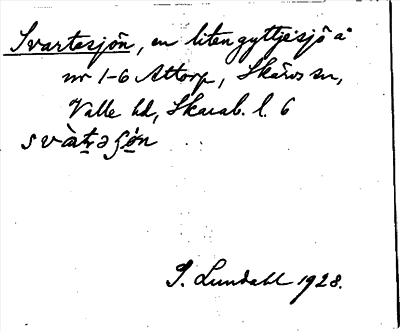 Svartasjön, en liten gyttjesjö å
nr 1-6 Attorp, Skärvs sn,
Valle hd, Skarab. l. 6
I. Lundahl 1928.